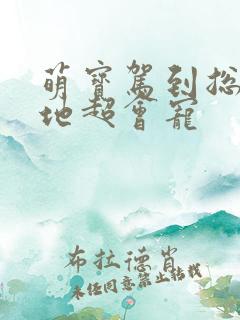 萌寶駕到总
地超會寵
布拉德肖
未经同意禁止转载